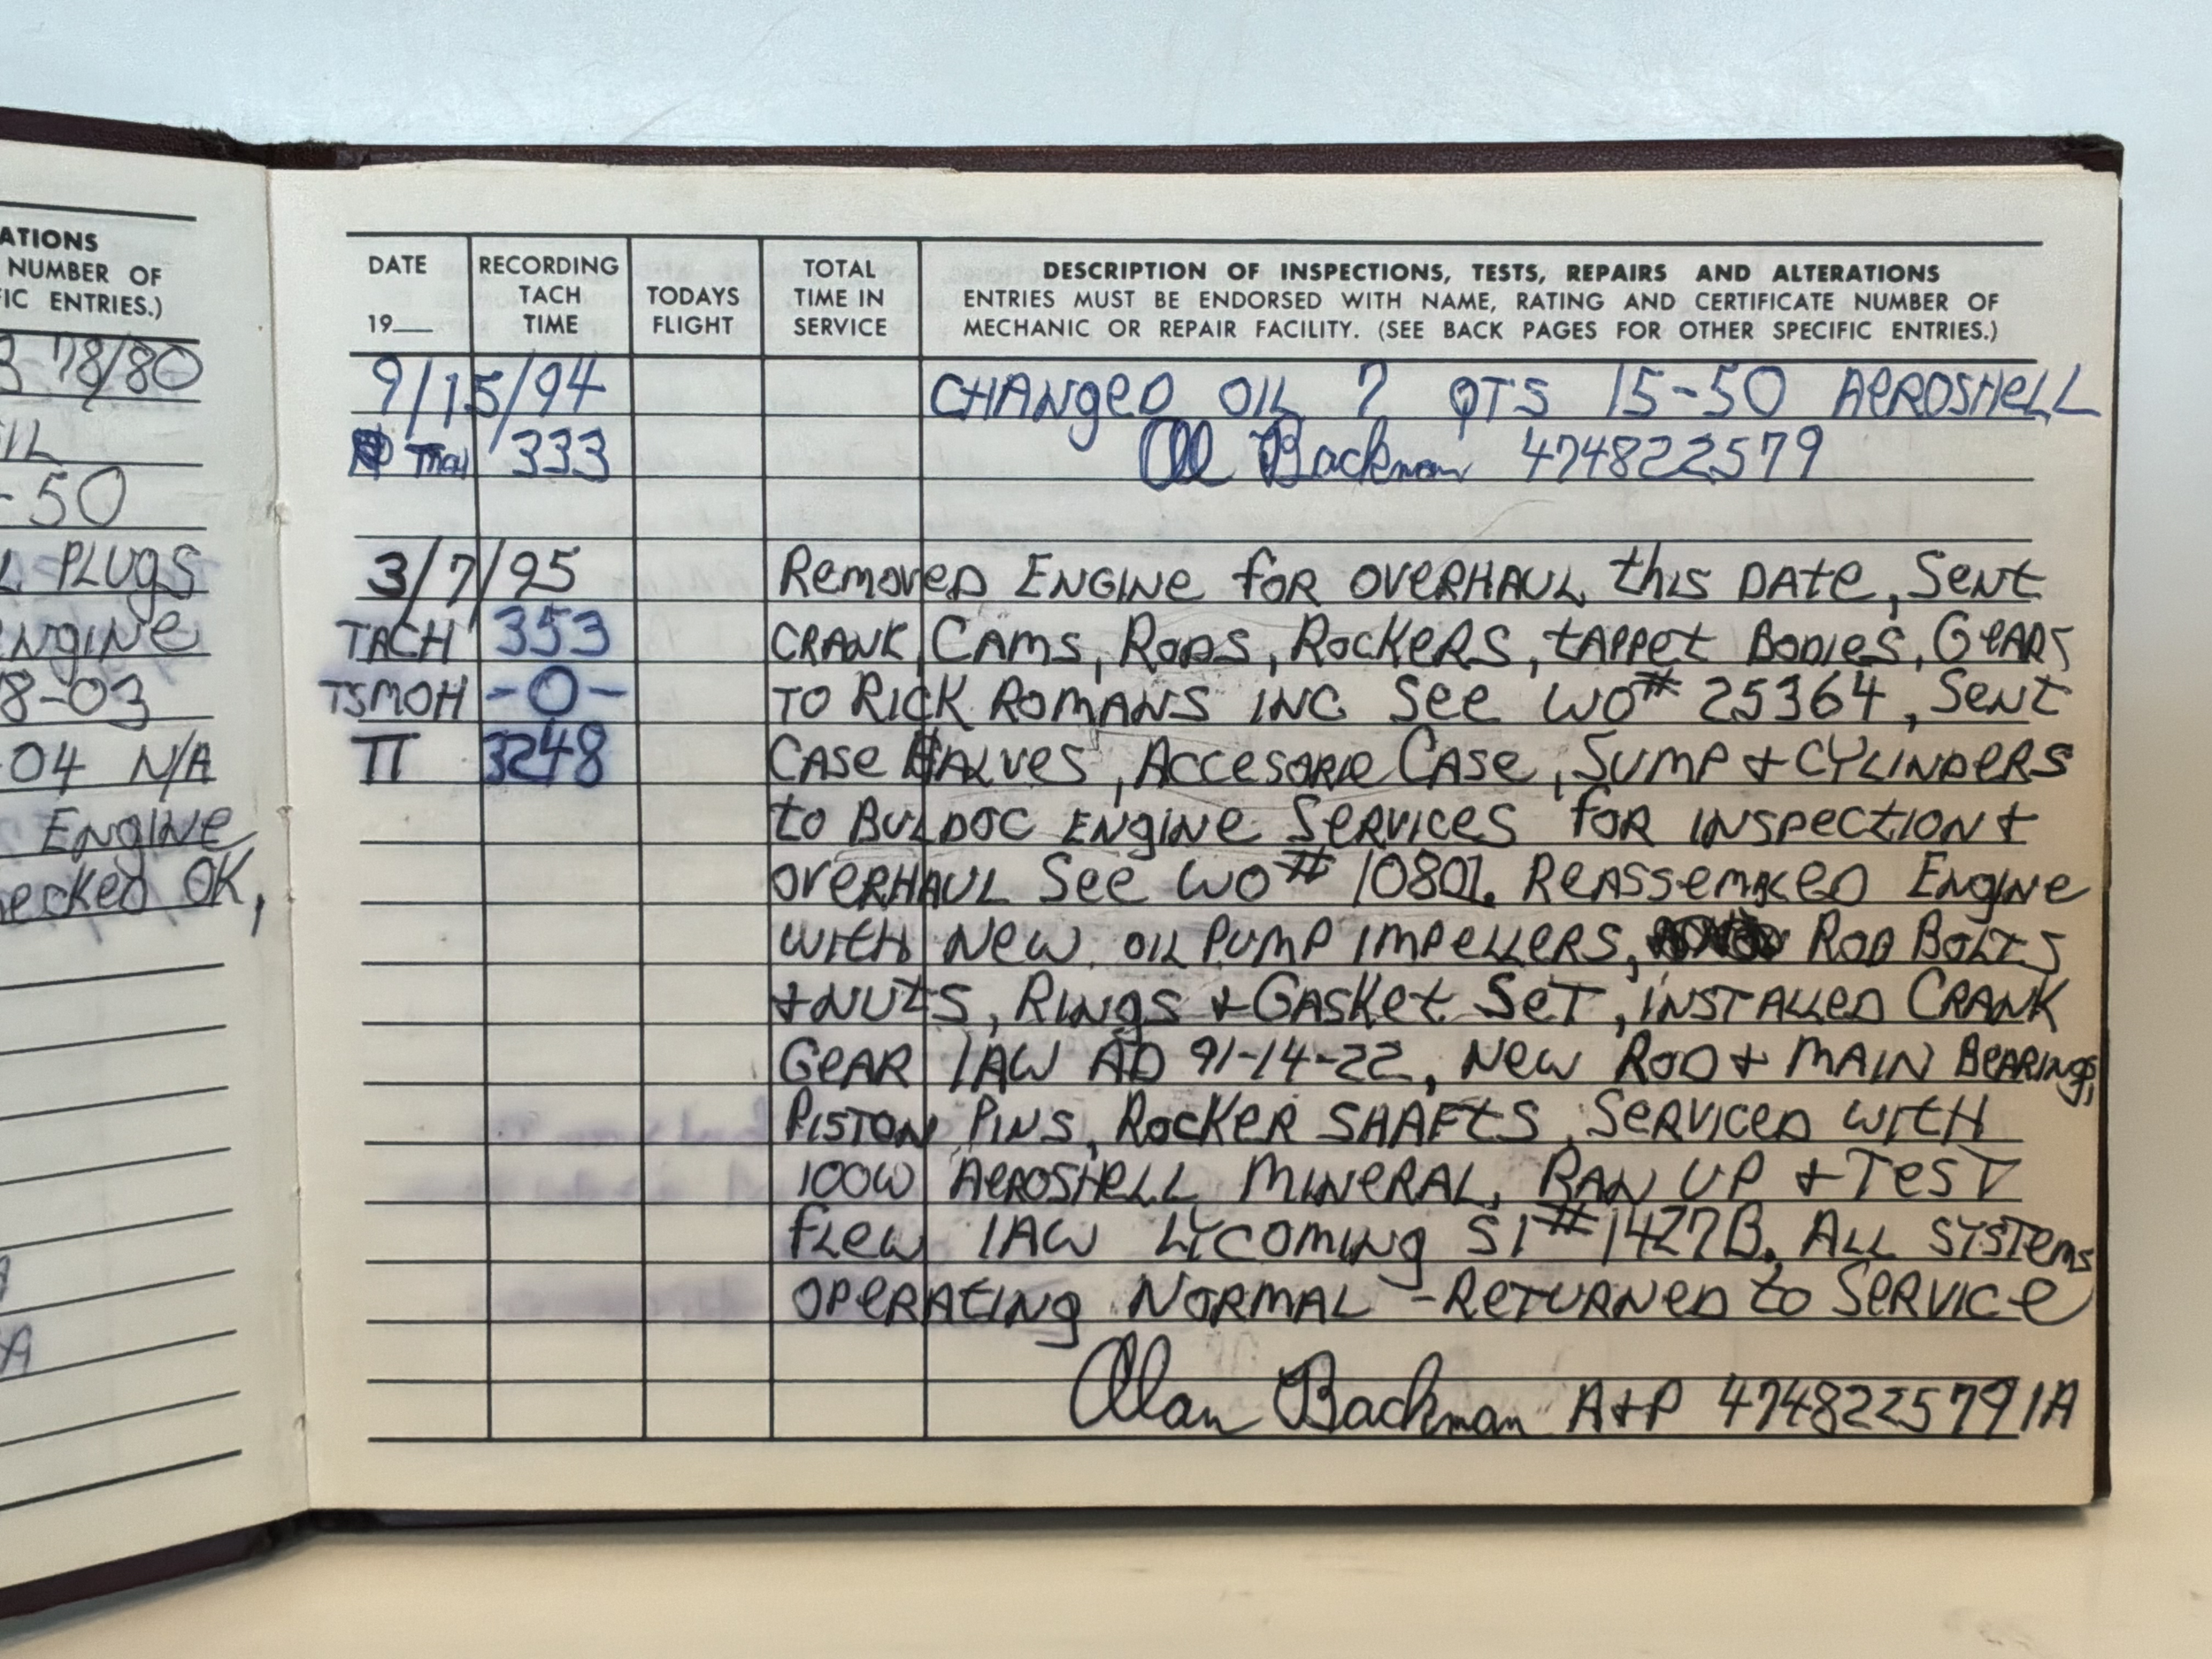 ATIONS
NUMBER OF
IC ENTRIES.)
78/80
IL
-50
L PLUGS
ENGINE
8-03
04 N/A
ENGINE
ecked OK,
DATE
19__
RECORDING
TACH
TIME
TODAYS
FLIGHT
TOTAL
TIME IN
SERVICE
DESCRIPTION OF INSPECTIONS, TESTS, REPAIRS AND ALTERATIONS
ENTRIES MUST BE ENDORSED WITH NAME, RATING AND CERTIFICATE NUMBER OF
MECHANIC OR REPAIR FACILITY. (SEE BACK PAGES FOR OTHER SPECIFIC ENTRIES.)
9/15/94 CHANgeD OIL 7 QTS 15-50 AeROSHeLL
TACH 333 Al Backman 474822579
3/7/95 RemoveD ENGINe foR OVeRHAUL this DAte, SeNt
TACH 353 CRANK, CAMS, RODS, ROCKeRS, tAPPet BODIeS, GeARS
TSMOH -0- TO RICK ROMANS INC See WO# 25364, SeNt
TT 3248 CASe HALVeS, ACCeSORIe CASe, SUMP + CYLINDeRS
to BULDOC ENgINe SeRVICeS foR INSPectION +
OVeRHAUL See WO# 10801. ReASSeMBLeD ENgINe
WItH New OIL PUMP IMPeLLeRS, ROD BOLTS
+ NUtS, RINgS + GASKet SeT, INSTALLeD CRANK
GeAR IAW AD 91-14-22, New ROD + MAIN BeARINgS,
PISTON PINS, ROCKeR SHAFtS, SeRVICeD WItH
100W AeROSHeLL MINeRAL, RAN UP + TeST
fLew IAW LYCOMINg SI# 1427B. ALL SYSTemS
OPeRAtINg NORMAL - ReTURNeD to SeRVICe
Alan Backman A+P 474822579 IA